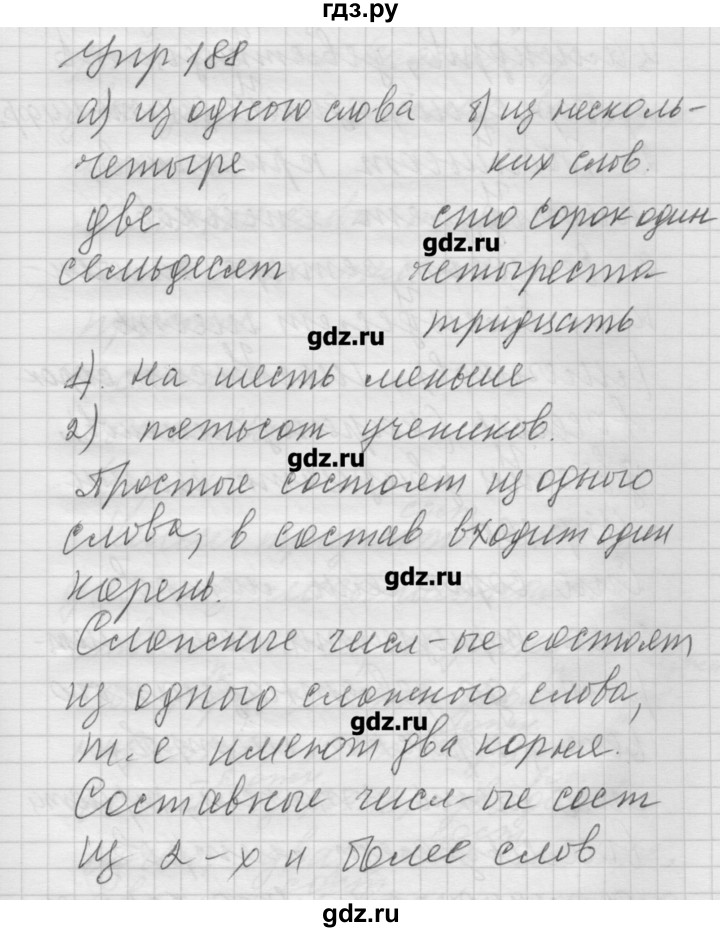 гдз.ру
Упр 188
а) из одного слова б) из несколь-
четыре ких слов.
две сто сорок один
gdz.ru
семьдесят четыреста
тридцать
gdz.ru
1). на шесть меньше
2) пятьсот учеников.
gdz.ru
Простые состоят из одного
слова, в состав входит один
gdz.ru
корень.
Сложные числ-ые состоят
из одного сложного слова,
gdz.ru
т.е имеют два корня.
Составные числ-ые сост
из 2-х и более слов
gdz.ru